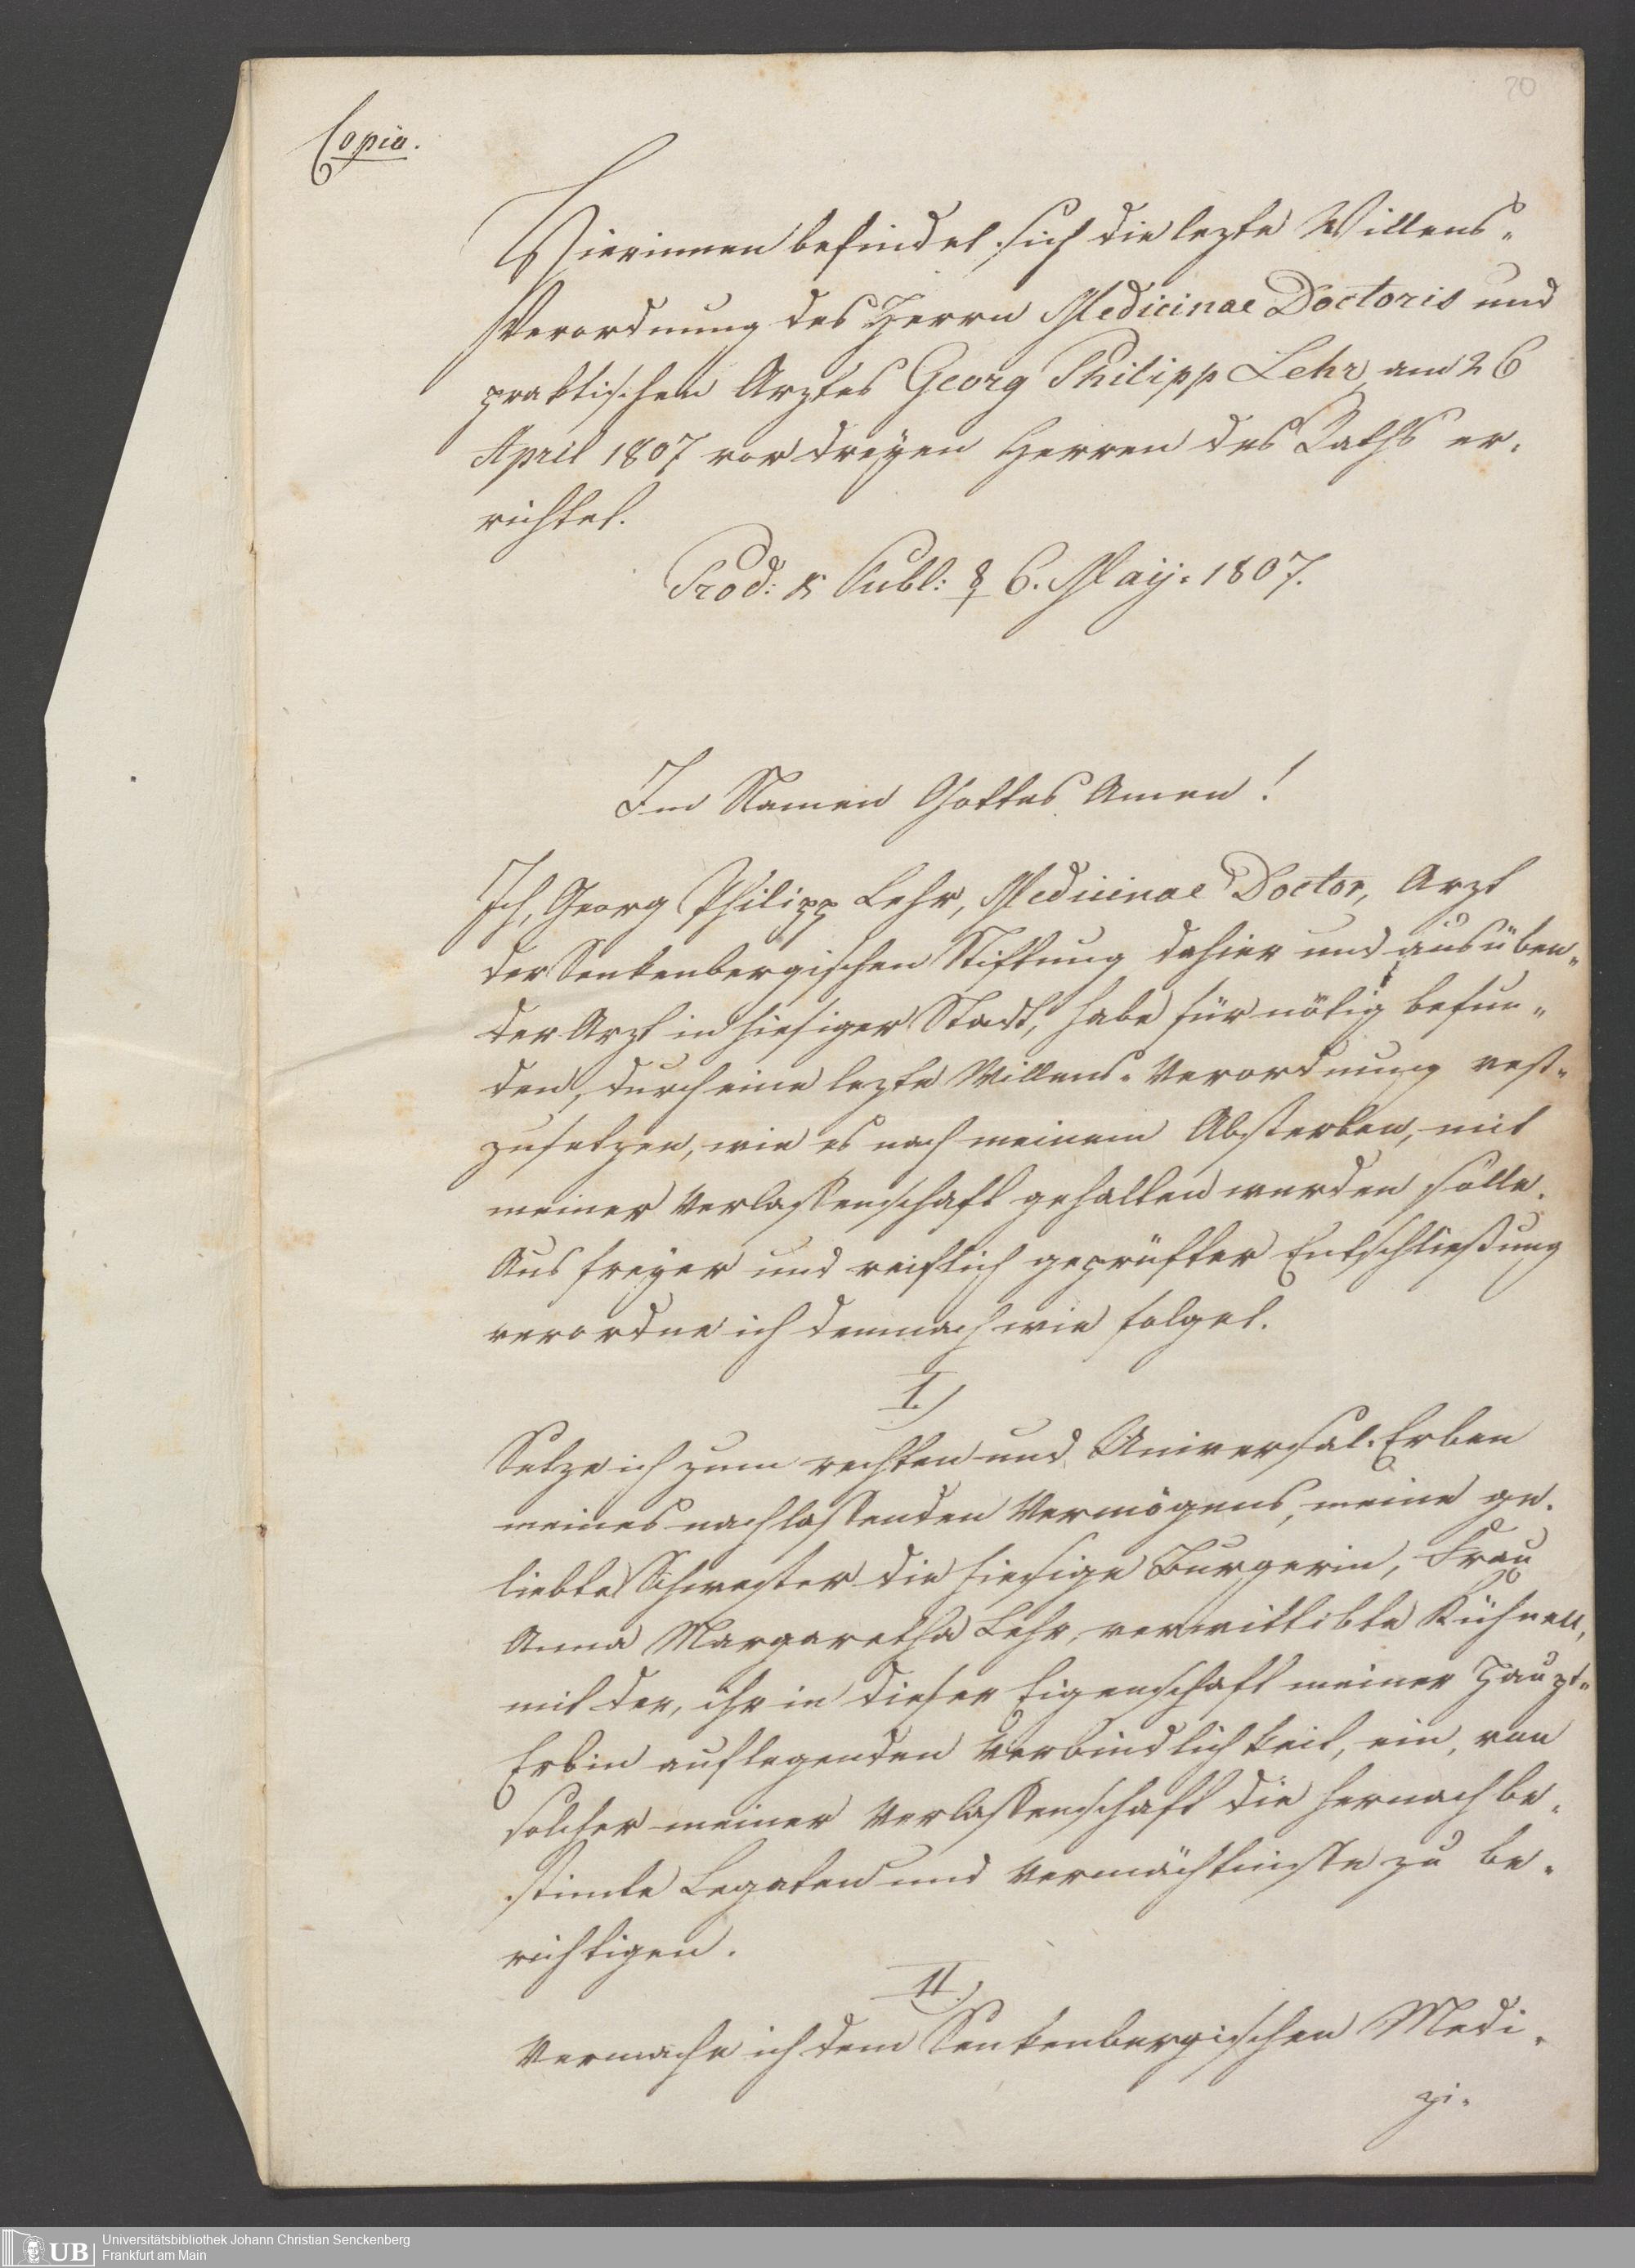 20
Copia.
Hierinnen befindet sich die lezte Willens-
Verordnung des Herrn Medicinae Doctoris und
praktischen Arztes Georg Philipp Lehr, am 26
April 1807 vor dreyen Herren des Raths er-
richtet.
Prod: & Publ: ☿ 6. Maij. 1807.
Im Namen Gottes Amen!
Ich, Georg Philipp Lehr, Medicinae Doctor, Arzt
der Senkenbergischen Stiftung dahier und ausüben-
der Arzt in hiesiger Stadt, habe für nötig befun-
den, durch eine lezte Willens-Verordnung vest-
zusetzen, wie es nach meinem Absterben, mit
meiner Verlassenschaft gehalten werden solle.
Aus freyer und reiflich geprüfter Entschließung
verordne ich demnach wie folget.
I.)
Setze ich zum rechten und Universal-Erben
meines nachlassenden Vermögens, meine ge-
liebte Schwester die hiesige Burgerin, Frau
Anna Margaretha Lehr, verwittibte Kühnell,
mit der, ihr in dieser Eigenschaft meiner Haupt-
Erbin auflegenden Verbindlichkeit, ein, von
solcher meiner Verlassenschaft die hernach be-
stimte Legaten und Vermächtnisse zu be-
richtigen.
II.)
Vermache ich dem Senkenbergischen Medi-
zi-
UB
Universitätsbibliothek Johann Christian Senckenberg
Frankfurt am Main